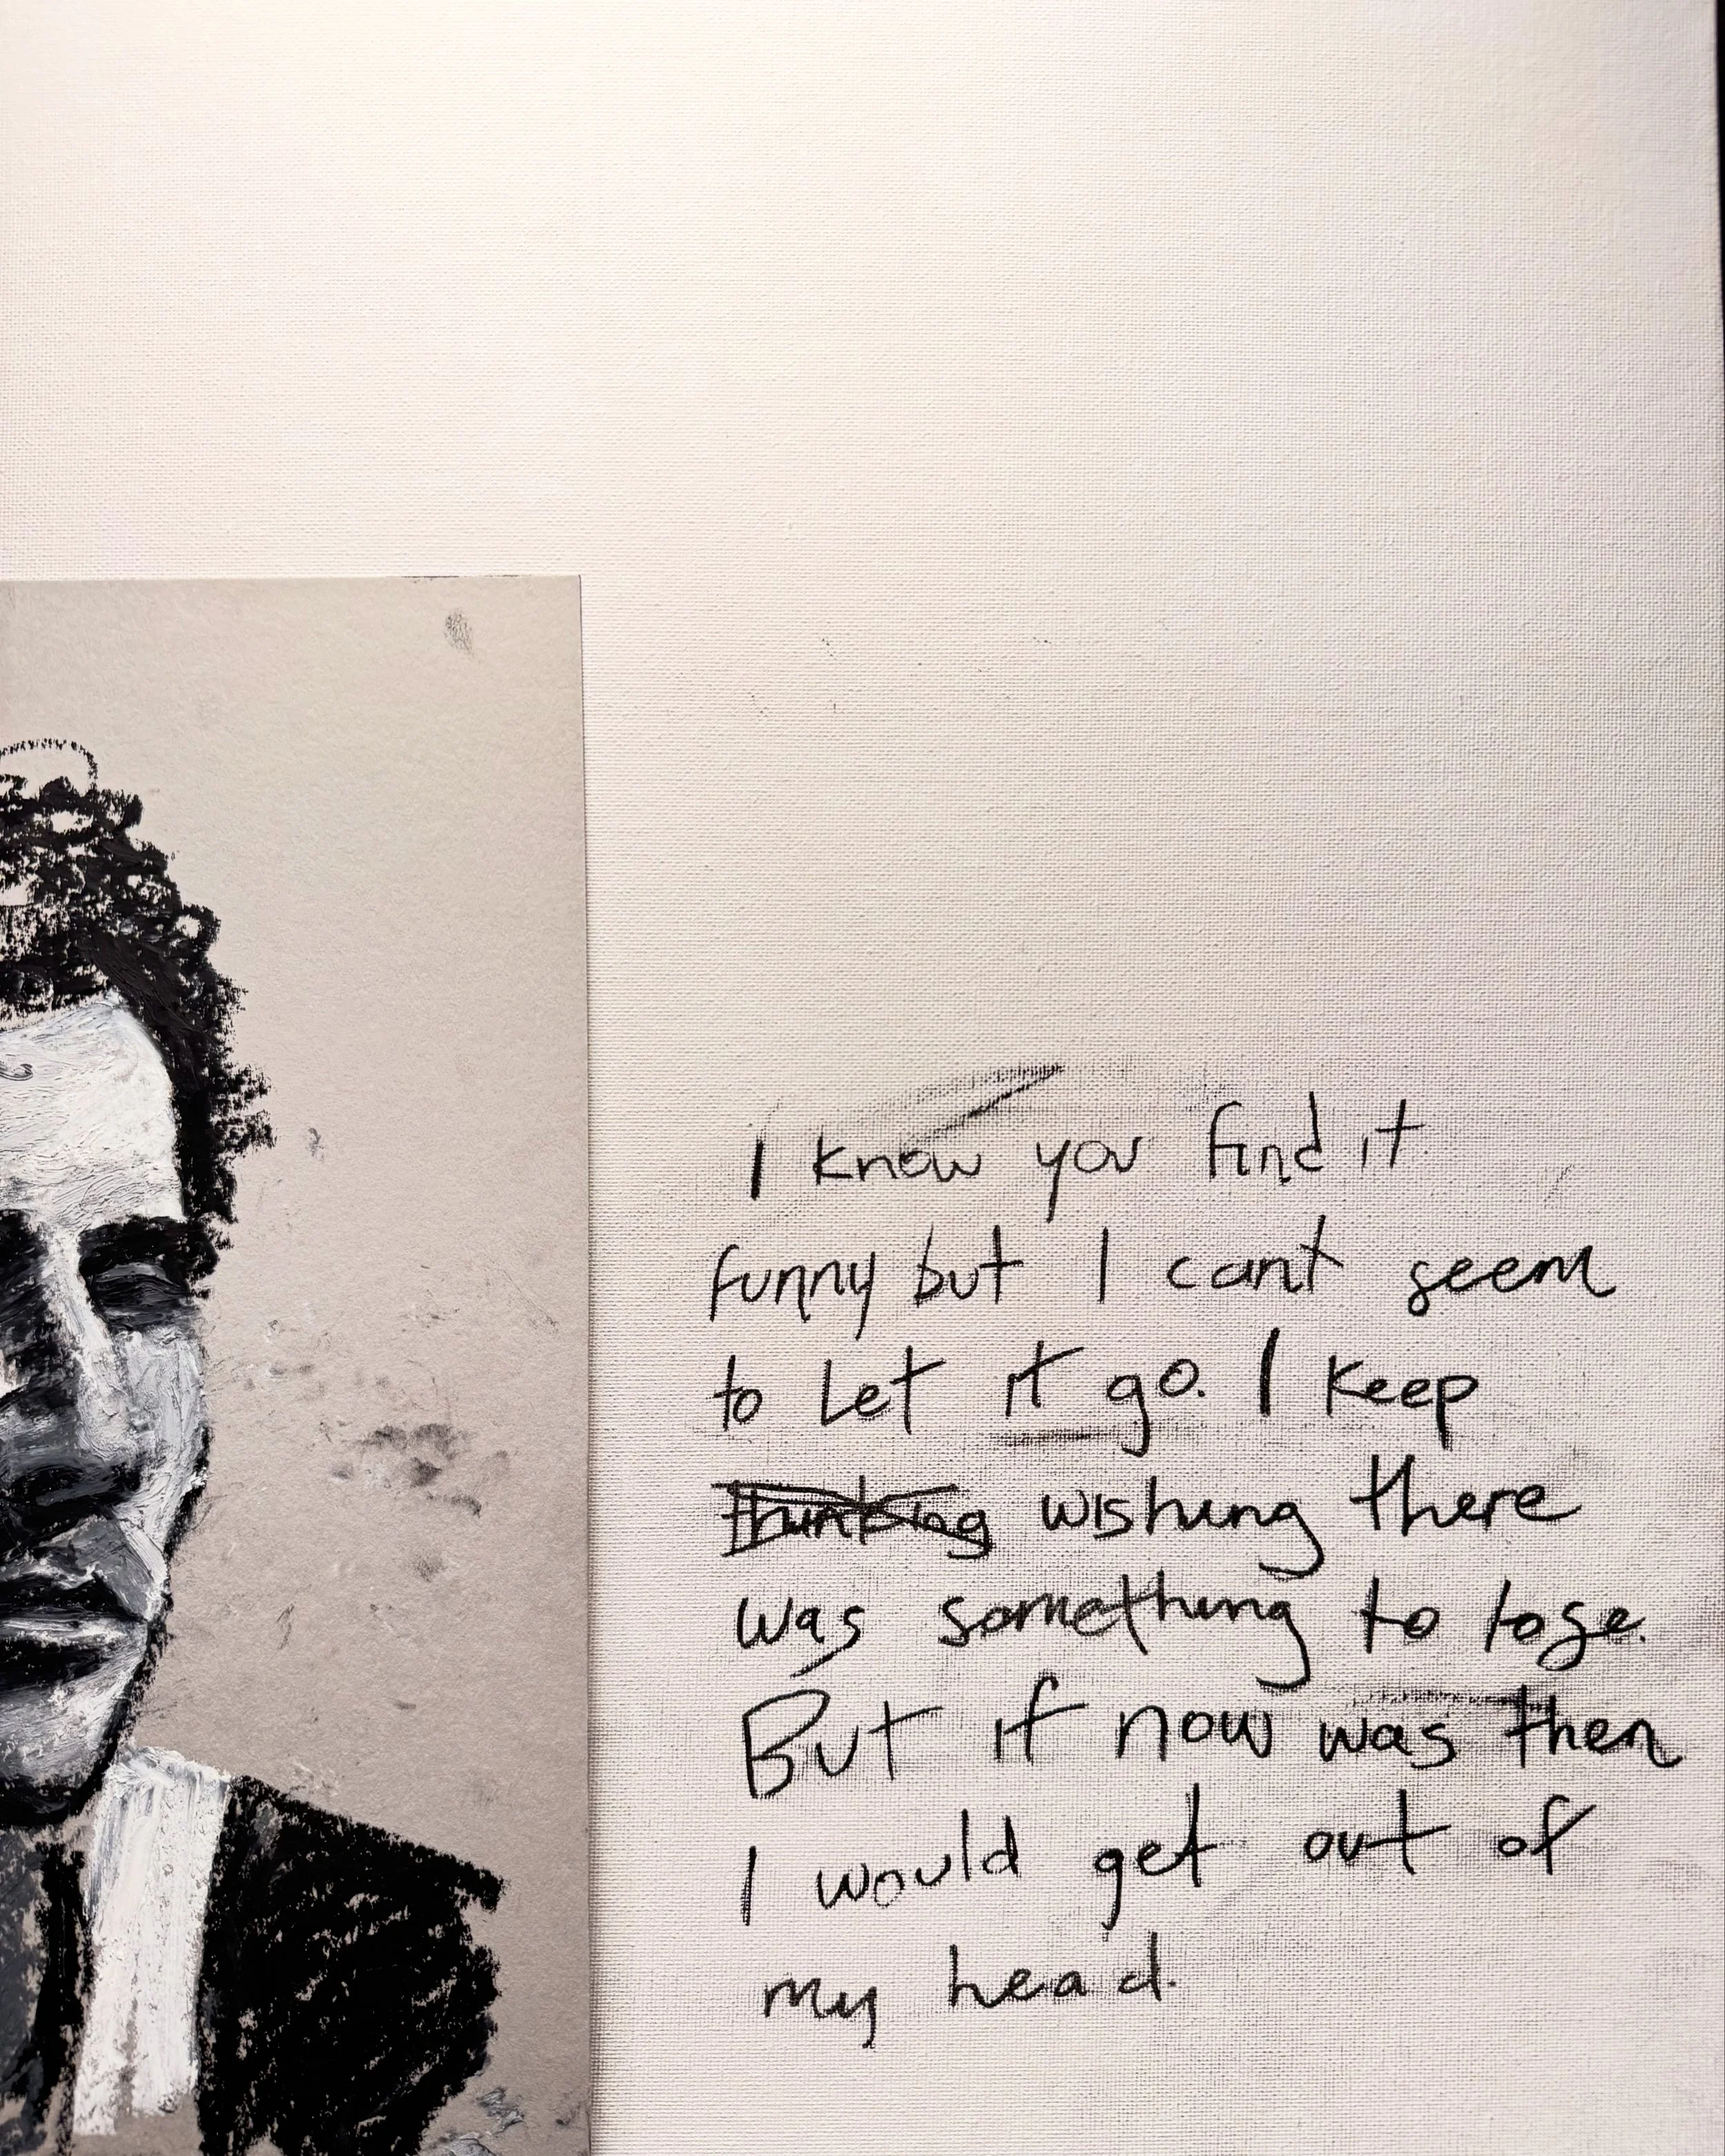 I know you find it
funny but I cant seem
to let it go. I keep
thinking wishing there
was something to lose.
But if now was then
I would get out of
my head.